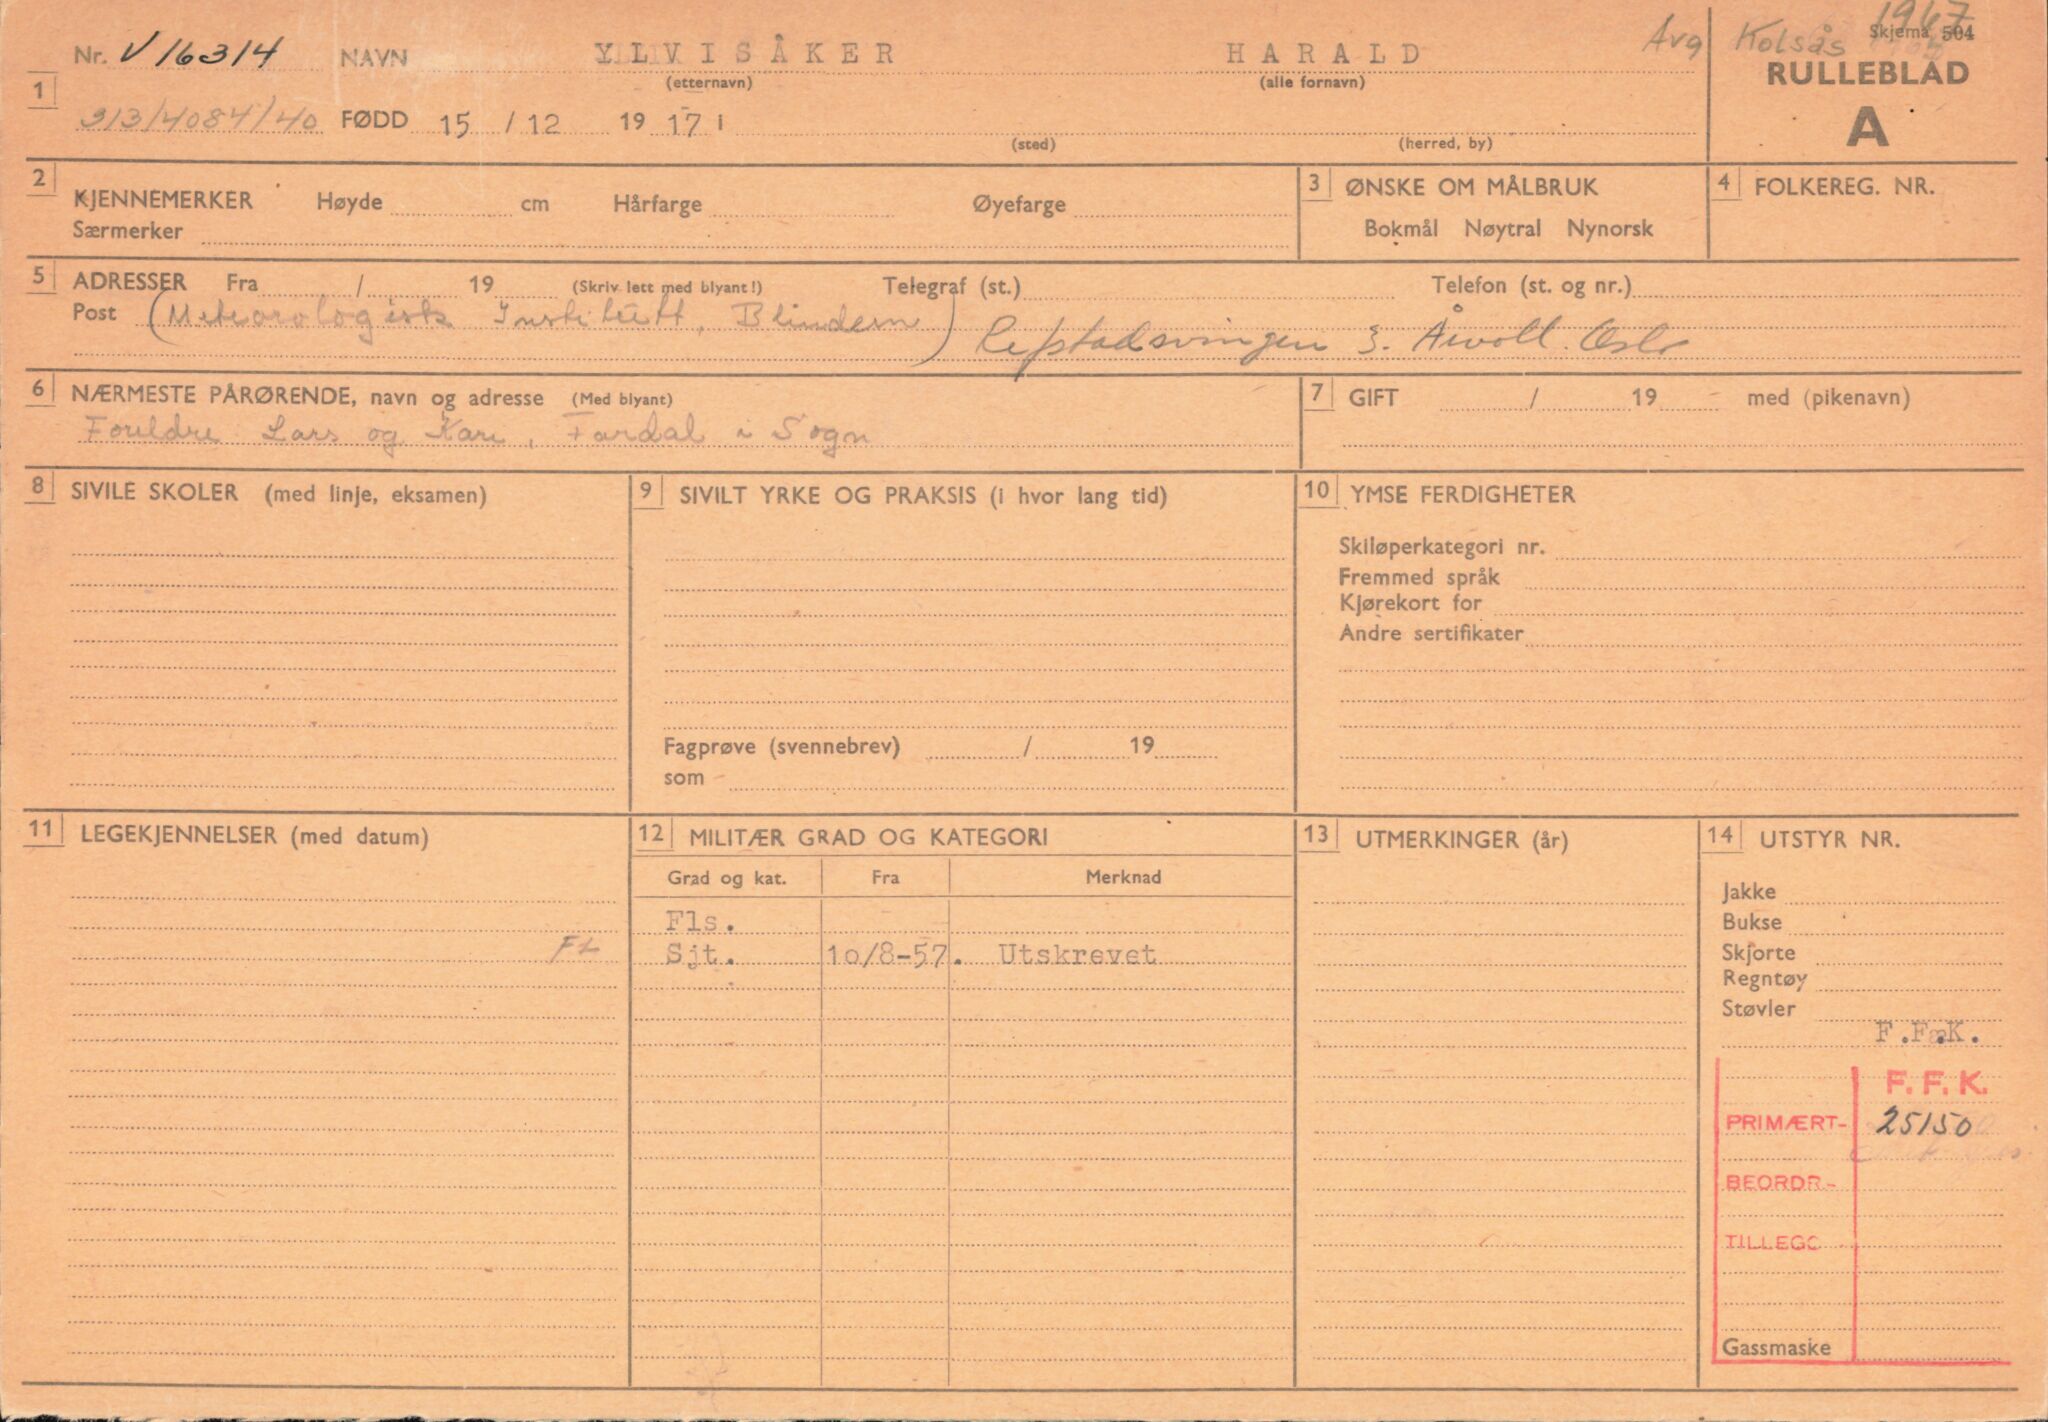 1967
Nr. V 16314 NAVN YLVISÅKER HARALD Avg Kolsås Skjema 504
(etternavn) (alle fornavn) RULLEBLAD
1
313/4084/40 FØDD 15 / 12 1917 A
(sted) (herred, by)
2 KJENNEMERKER Høyde cm Hårfarge Øyefarge
Særmerker
3 ØNSKE OM MÅLBRUK
Bokmål Nøytral Nynorsk
4 FOLKEREG. NR.
5 ADRESSER Fra / 19 (Skriv lett med blyant!) Telegraf (st.) Telefon (st. og nr.)
Post (Meteorologisk Institutt, Blindern) Refstadsvingen 3. Årvoll. Oslo
6 NÆRMESTE PÅRØRENDE, navn og adresse (Med blyant)
Foreldre Lars og Kari, Fardal i Sogn
7 GIFT / 19 med (pikenavn)
8 SIVILE SKOLER (med linje, eksamen)
9 SIVILT YRKE OG PRAKSIS (i hvor lang tid)
Fagprøve (svennebrev) / 19
som
10 YMSE FERDIGHETER
Skiløperkategori nr.
Fremmed språk
Kjørekort for
Andre sertifikater
11 LEGEKJENNELSER (med datum)
FL
12 MILITÆR GRAD OG KATEGORI
Grad og kat. Fra Merknad
Fls.
Sjt. 10/8-57. Utskrevet
13 UTMERKINGER (år)
14 UTSTYR NR.
Jakke
Bukse
Skjorte
Regntøy
Støvler
F.F.K.
F. F. K.
PRIMÆRT- 25150
BEORDR-
TILLEGG
Gassmaske